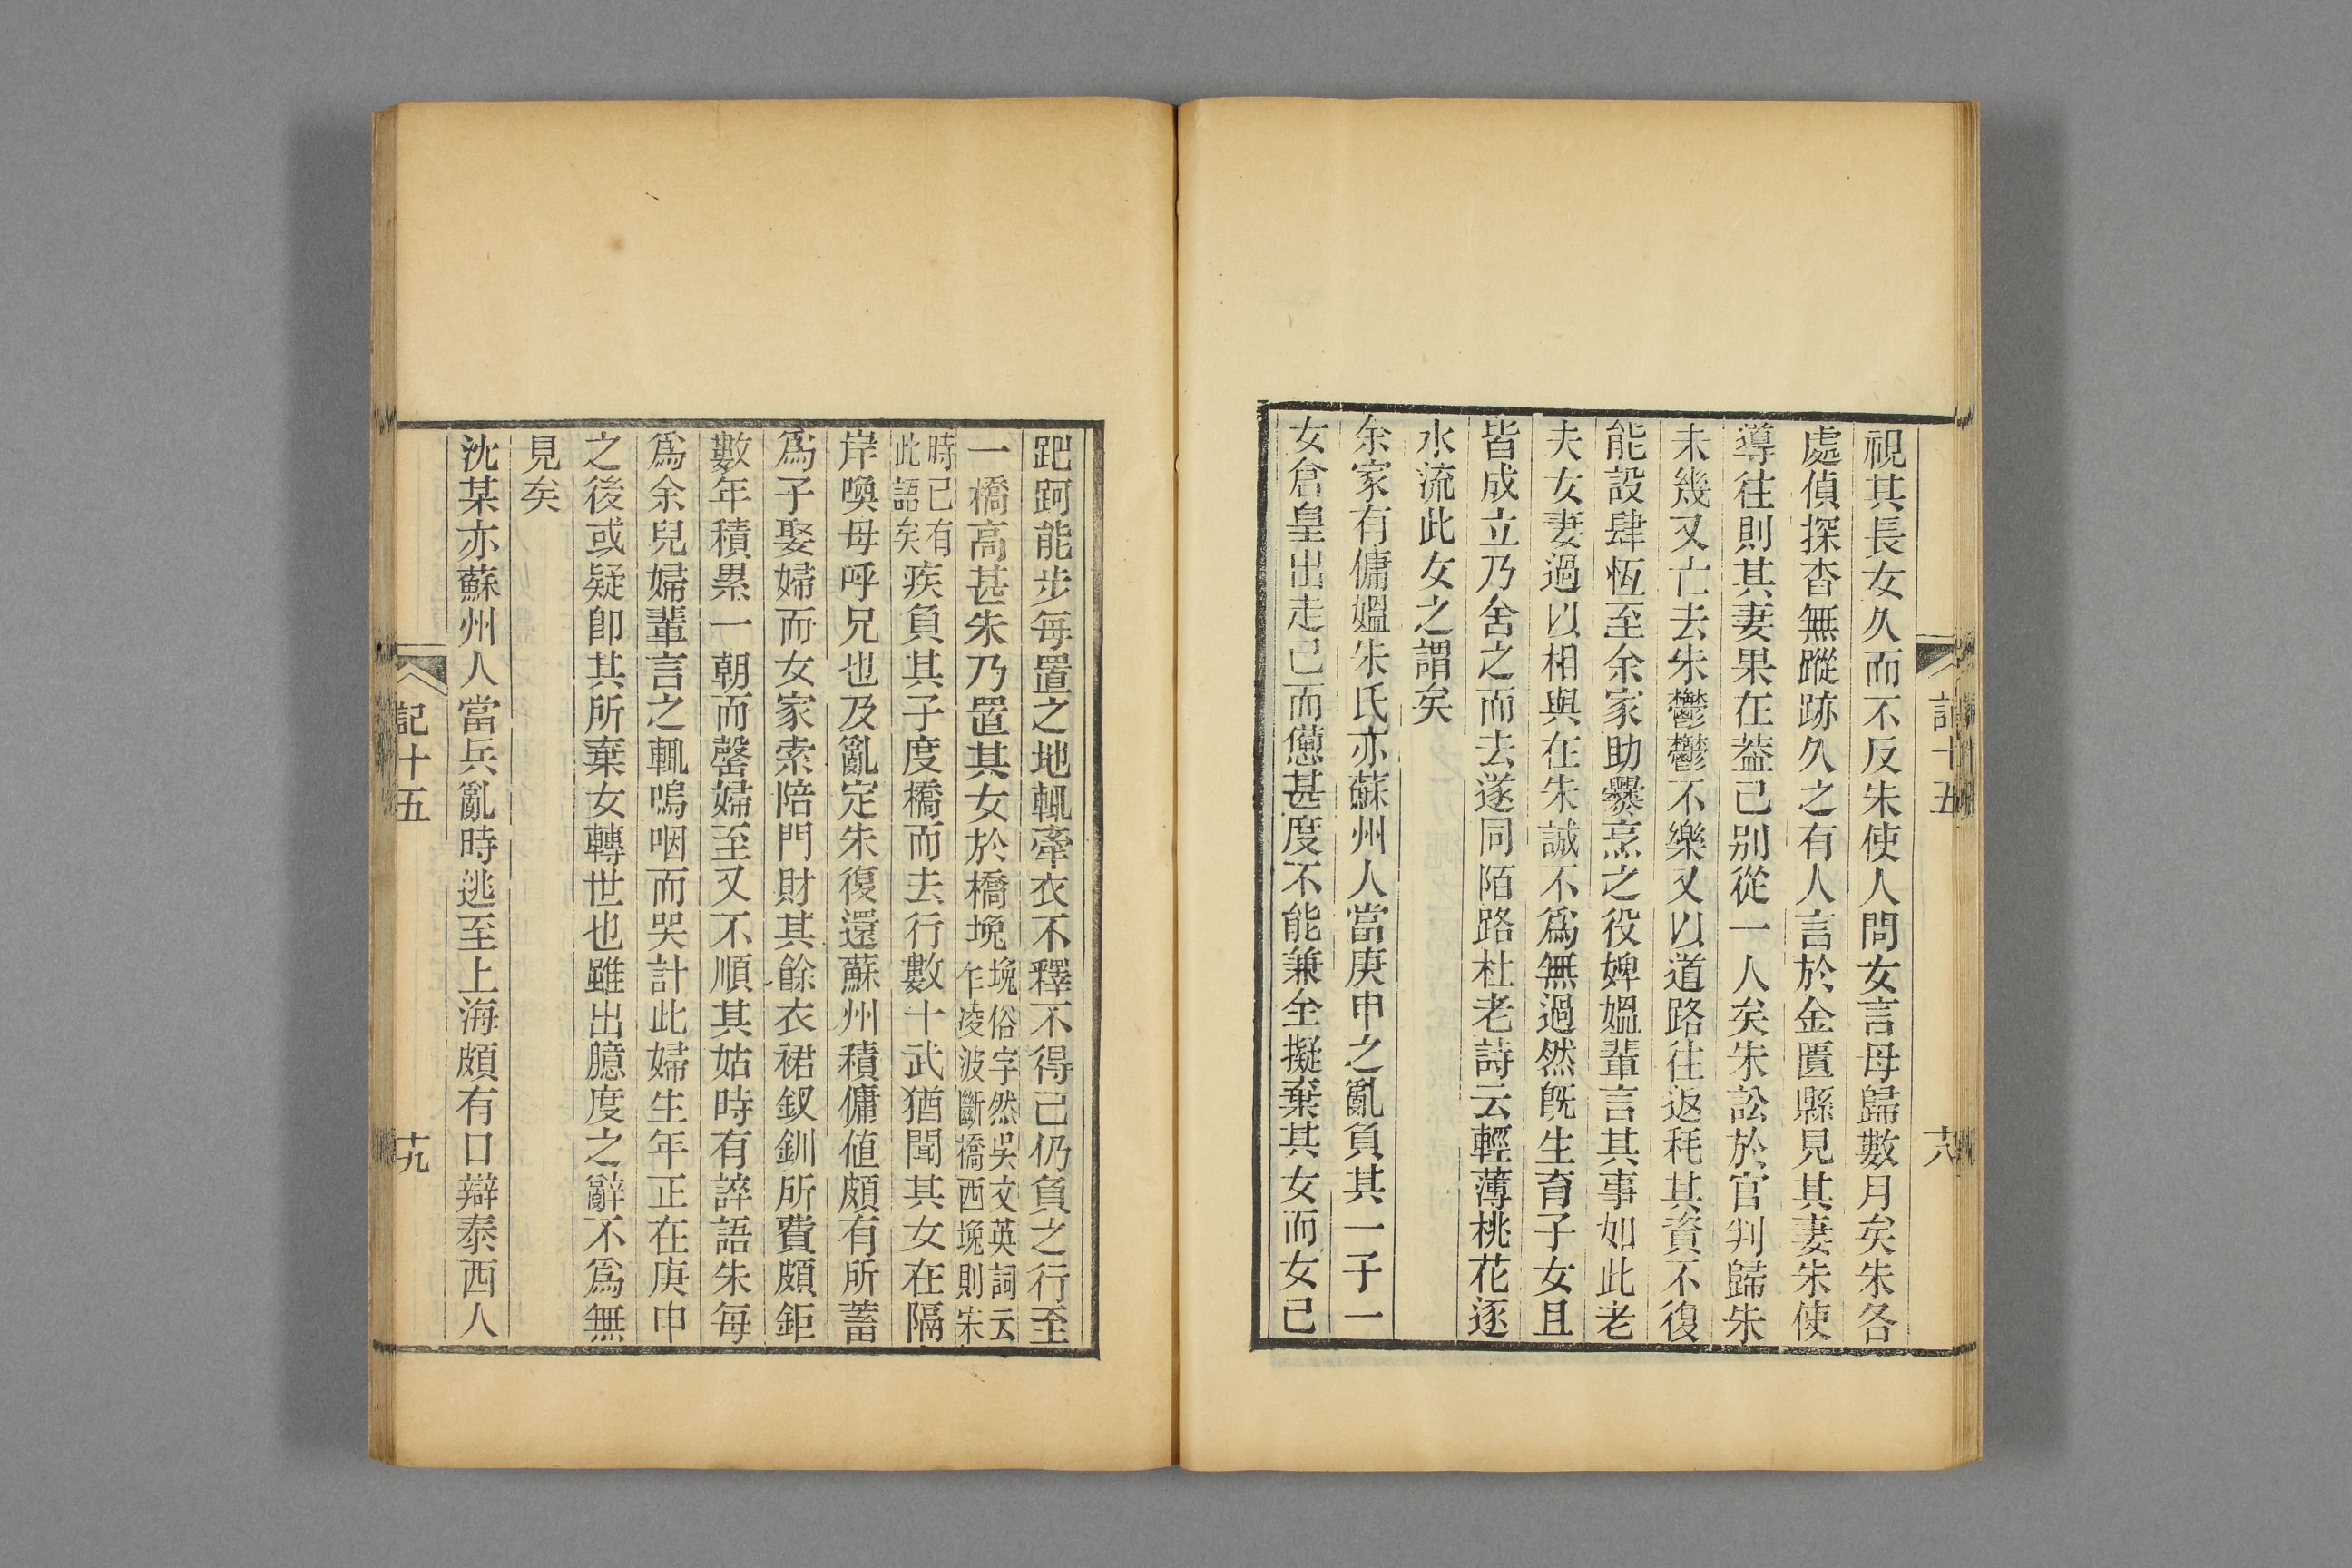 視其長女久而不反朱使人問女言母歸數月矣朱各
處偵探杳無蹤跡久之有人言於金匱縣見其妻朱使
導往則其妻果在葢已別從一人矣朱訟於官判歸朱
未幾又亡去朱鬱鬱不樂又以道路往返秏其資不復
能設肆恆至余家助爨烹之役婢媼輩言其事如此老
夫女妻過以相與在朱誠不爲無過然旣生育子女且
皆成立乃舍之而去遂同陌路杜老詩云輕薄桃花逐
水流此女之謂矣
余家有傭媼朱氏亦蘇州人當庚申之亂負其一子一
女倉皇出走已而憊甚度不能兼全擬棄其女而女已
記十五
十八
跁跒能步每置之地輒牽衣不釋不得已仍負之行至
一橋高甚朱乃置其女於橋堍堍俗字然吳文英詞云
乍凌波斷橋西堍則宋
時已有
此語矣疾負其子度橋而去行數十武猶聞其女在隔
岸喚母呼兄也及亂定朱復還蘇州積傭値頗有所蓄
爲子娶婦而女家索陪門財其餘衣裙釵釧所費頗鉅
數年積累一朝而罄婦至又不順其姑時有誶語朱每
爲余兒婦輩言之輒嗚咽而哭計此婦生年正在庚申
之後或疑卽其所棄女轉世也雖出臆度之辭不爲無
見矣
沈某亦蘇州人當兵亂時逃至上海頗有口辯泰西人
記十五
十九